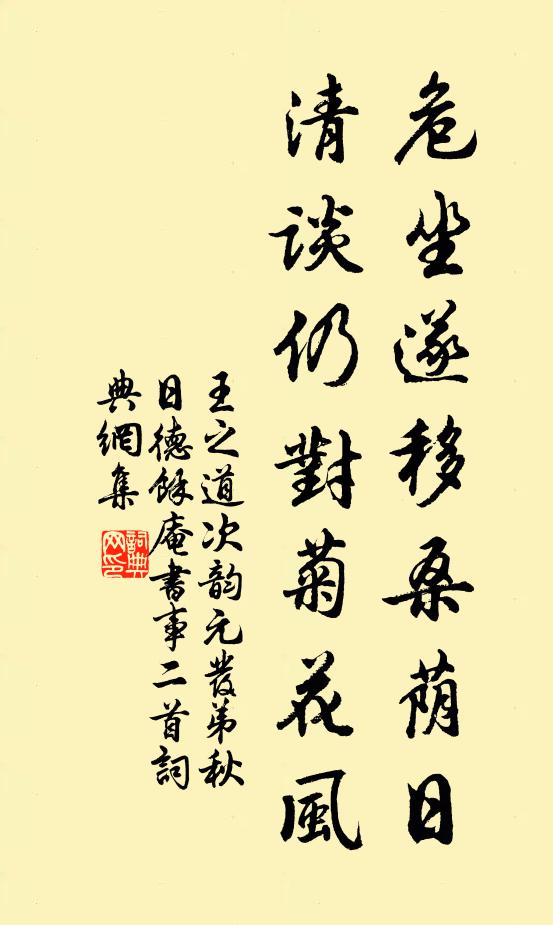 危坐遂移桑荫日
清談仍對菊花風
王之道次韵元發弟秋
日德餘庵書事二首詞
典網集
詞典网印